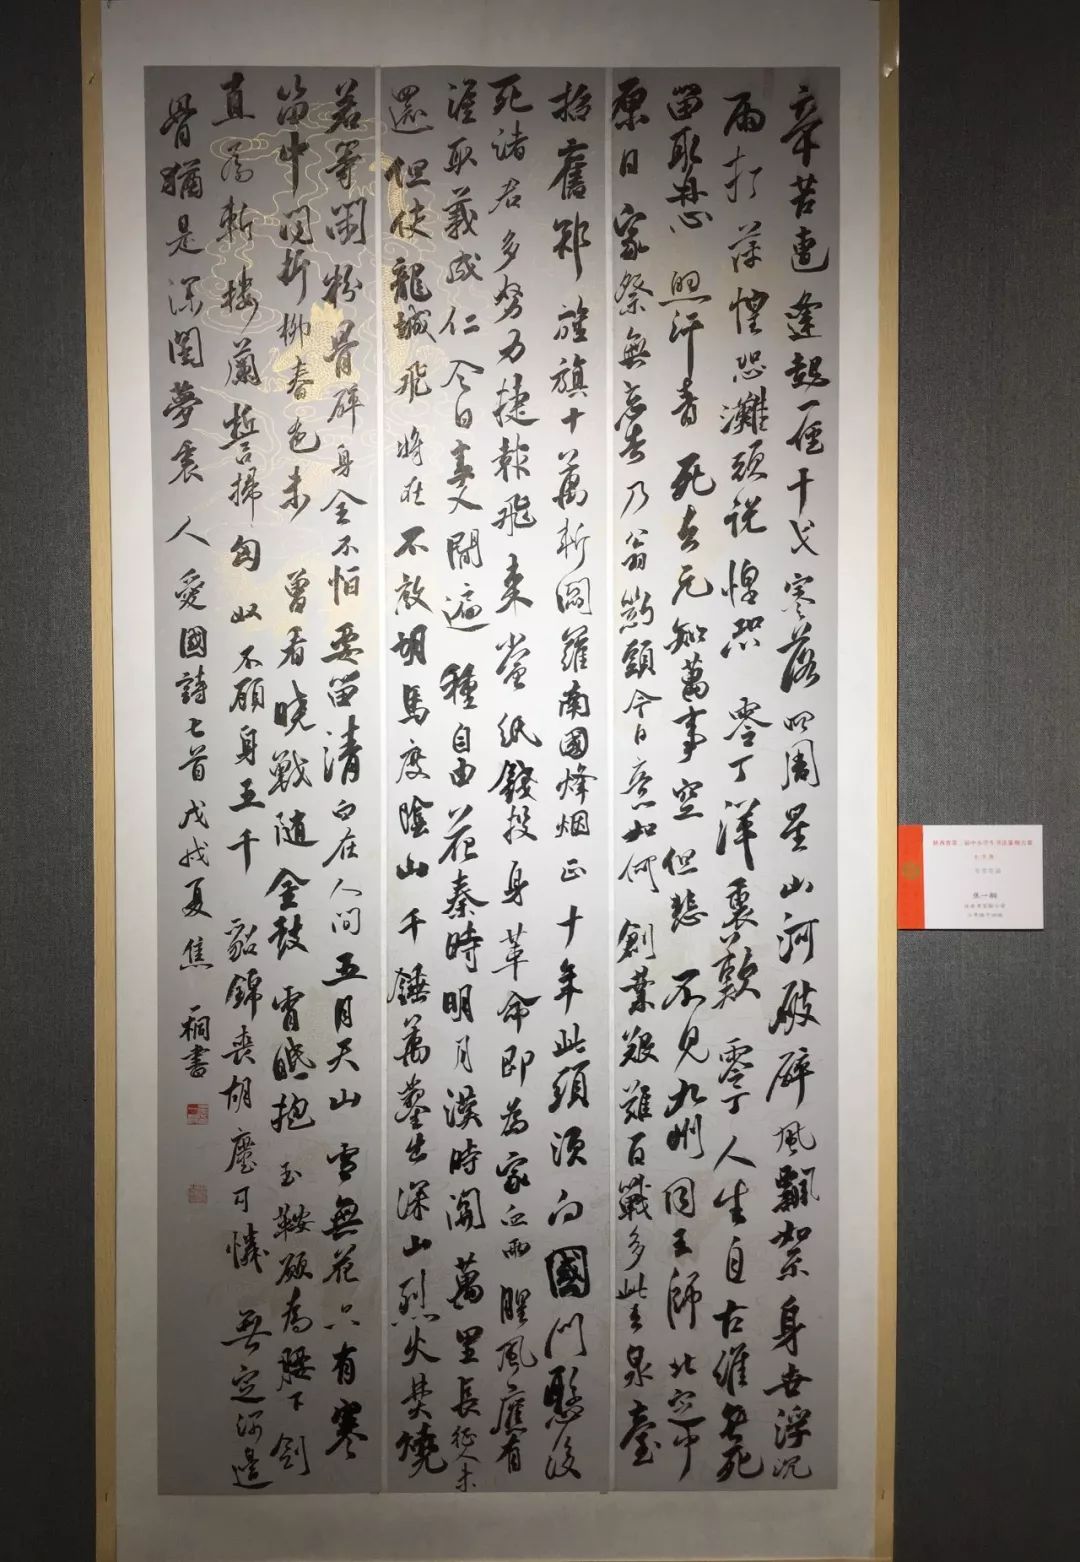 辛苦遭逢起一經干戈寥落四周星山河破碎風飄絮身世浮沉
雨打萍惶恐灘頭説惶恐零丁洋裏歎零丁人生自古誰無死
留取丹心照汗青死去元知萬事空但悲不見九州同王師北定中
原日家祭無忘告乃翁斷頭今日意如何創業艱難百戰多此去泉臺
招舊部旌旗十萬斬閻羅南國烽烟正十年此頭須向國門懸後
死諸君多努力捷報飛來當紙錢投身革命即為家血雨腥風應有
涯取義成仁今日事人間遍種自由花秦時明月漢時關萬里長征人未
還但使龍城飛將在不教胡馬度陰山千錘萬鑿出深山烈火焚燒
若等閑粉骨碎身全不怕要留清白在人間五月天山雪無花只有寒
笛中聞折柳春色未曾看曉戰隨金鼓宵眠抱玉鞍願為腰下劍
直為斬樓蘭誓掃匈奴不顧身五千貂錦喪胡塵可憐無定河邊
骨猶是深閨夢裏人愛國詩七首戊戌夏焦一桐書
焦一桐